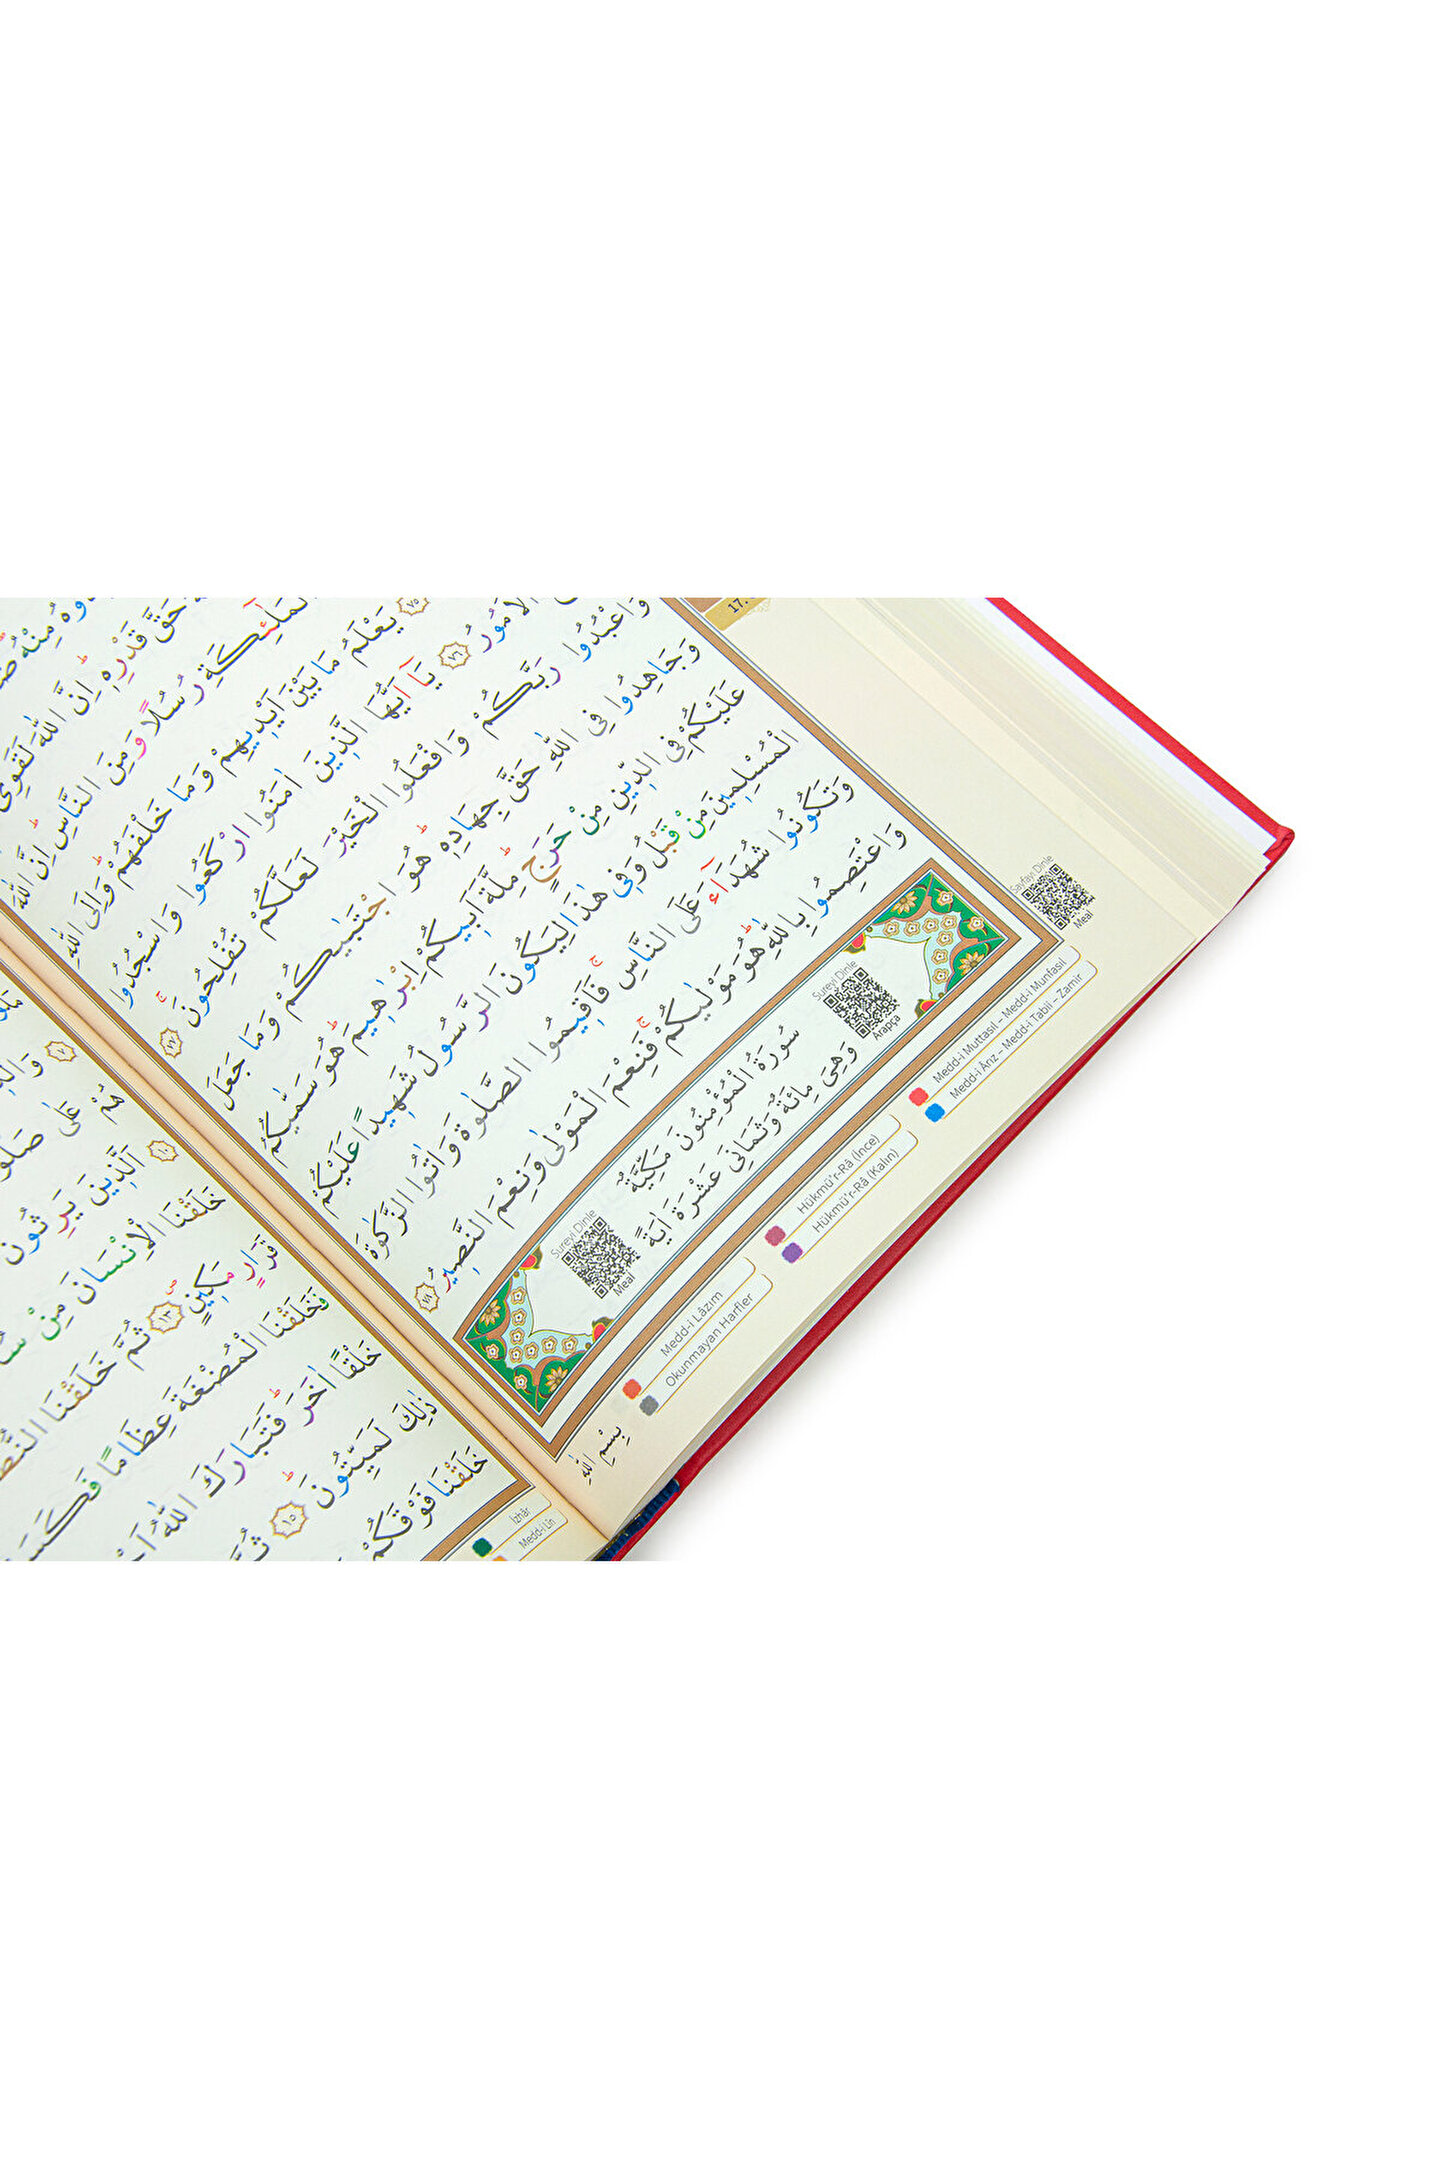 مِنْهُ
حَقَّ قَدْرِهٖ اِنَّ اللّٰهَ لَقَوِىٌّ
رُسُلًا وَمِنَ النَّاسِ اِنَّ اللّٰهَ
﴿٧٥﴾ يَعْلَمُ مَا بَيْنَ اَيْدٖيهِمْ وَمَا خَلْفَهُمْ وَاِلَى اللّٰهِ
الْاُمُورُ ﴿٧٦﴾ يَٓا اَيُّهَا الَّذٖينَ اٰمَنُوا ارْكَعُوا وَاسْجُدُوا
وَاعْبُدُوا رَبَّكُمْ وَافْعَلُوا الْخَيْرَ لَعَلَّكُمْ تُفْلِحُونَ ﴿٧٧﴾
وَجَاهِدُوا فِى اللّٰهِ حَقَّ جِهَادِهٖ هُوَ اجْتَبٰيكُمْ وَمَا جَعَلَ
عَلَيْكُمْ فِى الدّٖينِ مِنْ حَرَجٍ مِلَّةَ اَبٖيكُمْ اِبْرٰهٖيمَ هُوَ سَمّٰيكُمُ
الْمُسْلِمٖينَ مِنْ قَبْلُ وَفٖى هٰذَا لِيَكُونَ الرَّسُولُ شَهٖيدًا عَلَيْكُمْ
وَتَكُونُوا شُهَدَٓاءَ عَلَى النَّاسِ فَاَقٖيمُوا الصَّلٰوةَ وَاٰتُوا الزَّكٰوةَ
وَاعْتَصِمُوا بِاللّٰهِ هُوَ مَوْلٰيكُمْ فَنِعْمَ الْمَوْلٰى وَنِعْمَ النَّصٖيرُ ﴿٧٨﴾
Sureyi Dinle
Arapça
سُورَةُ الْمُؤْمِنُونَ مَكِّيَّةٌ
وَهِىَ مِائَةٌ وَثَمَانِى عَشْرَةَ اٰيَةً
Sureyi Dinle
Meal
Sayfayı Dinle
Meal
Medd-i Muttasıl – Medd-i Munfasıl
Medd-i Ârız – Medd-i Tabii – Zamir
Hükmü'r-Râ (İnce)
Hükmü'r-Râ (Kalın)
Medd-i Lâzım
Okunmayan Harfler
بِسْمِ اللّٰهِ
هُمْ عَلٰى
﴿١٠﴾ اَلَّذٖينَ يَرِثُونَ
خَلَقْنَا الْاِنْسَانَ مِنْ
قَرَارٍ مَكٖينٍ ﴿١٣﴾ ثُمَّ خَلَقْنَا
فَخَلَقْنَا الْمُضْغَةَ عِظَامًا
خَلْقًا اٰخَرَ فَتَبَارَكَ اللّٰهُ
ذٰلِكَ لَمَيِّتُونَ ﴿١٥﴾
خَلَقْنَا فَوْقَكُمْ
İzhâr
Medd-i Lîn